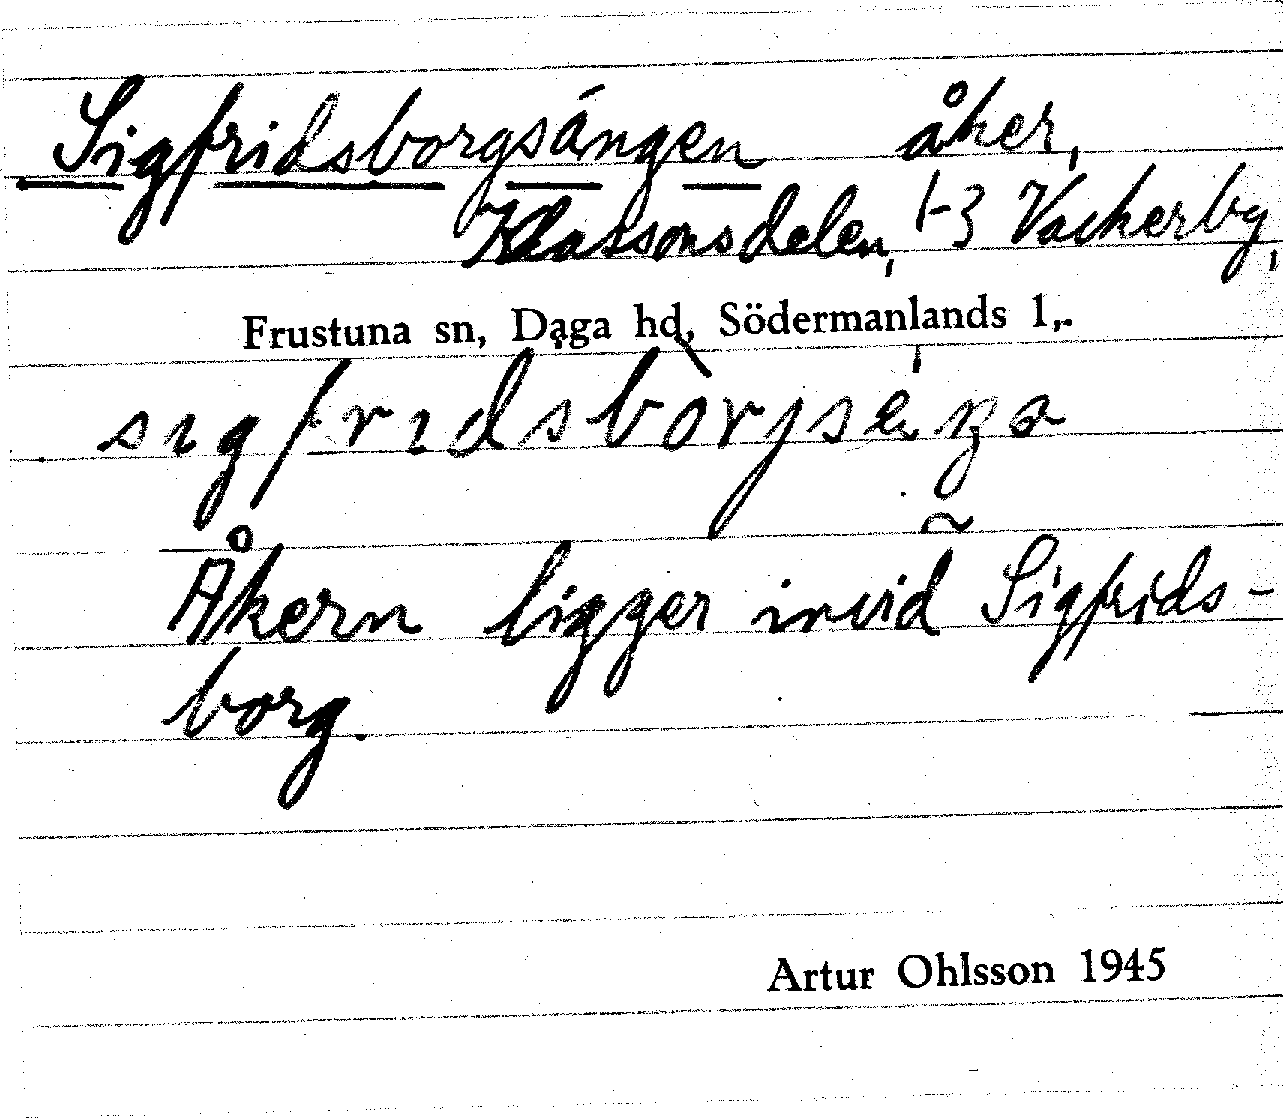 Sigfridsborgsängen åker,
Klassonsdelen, 1-3 Vackerby,
Frustuna sn, Daga hd, Södermanlands l.
Åkern ligger invid Sigfrids-
borg.
Artur Ohlsson 1945